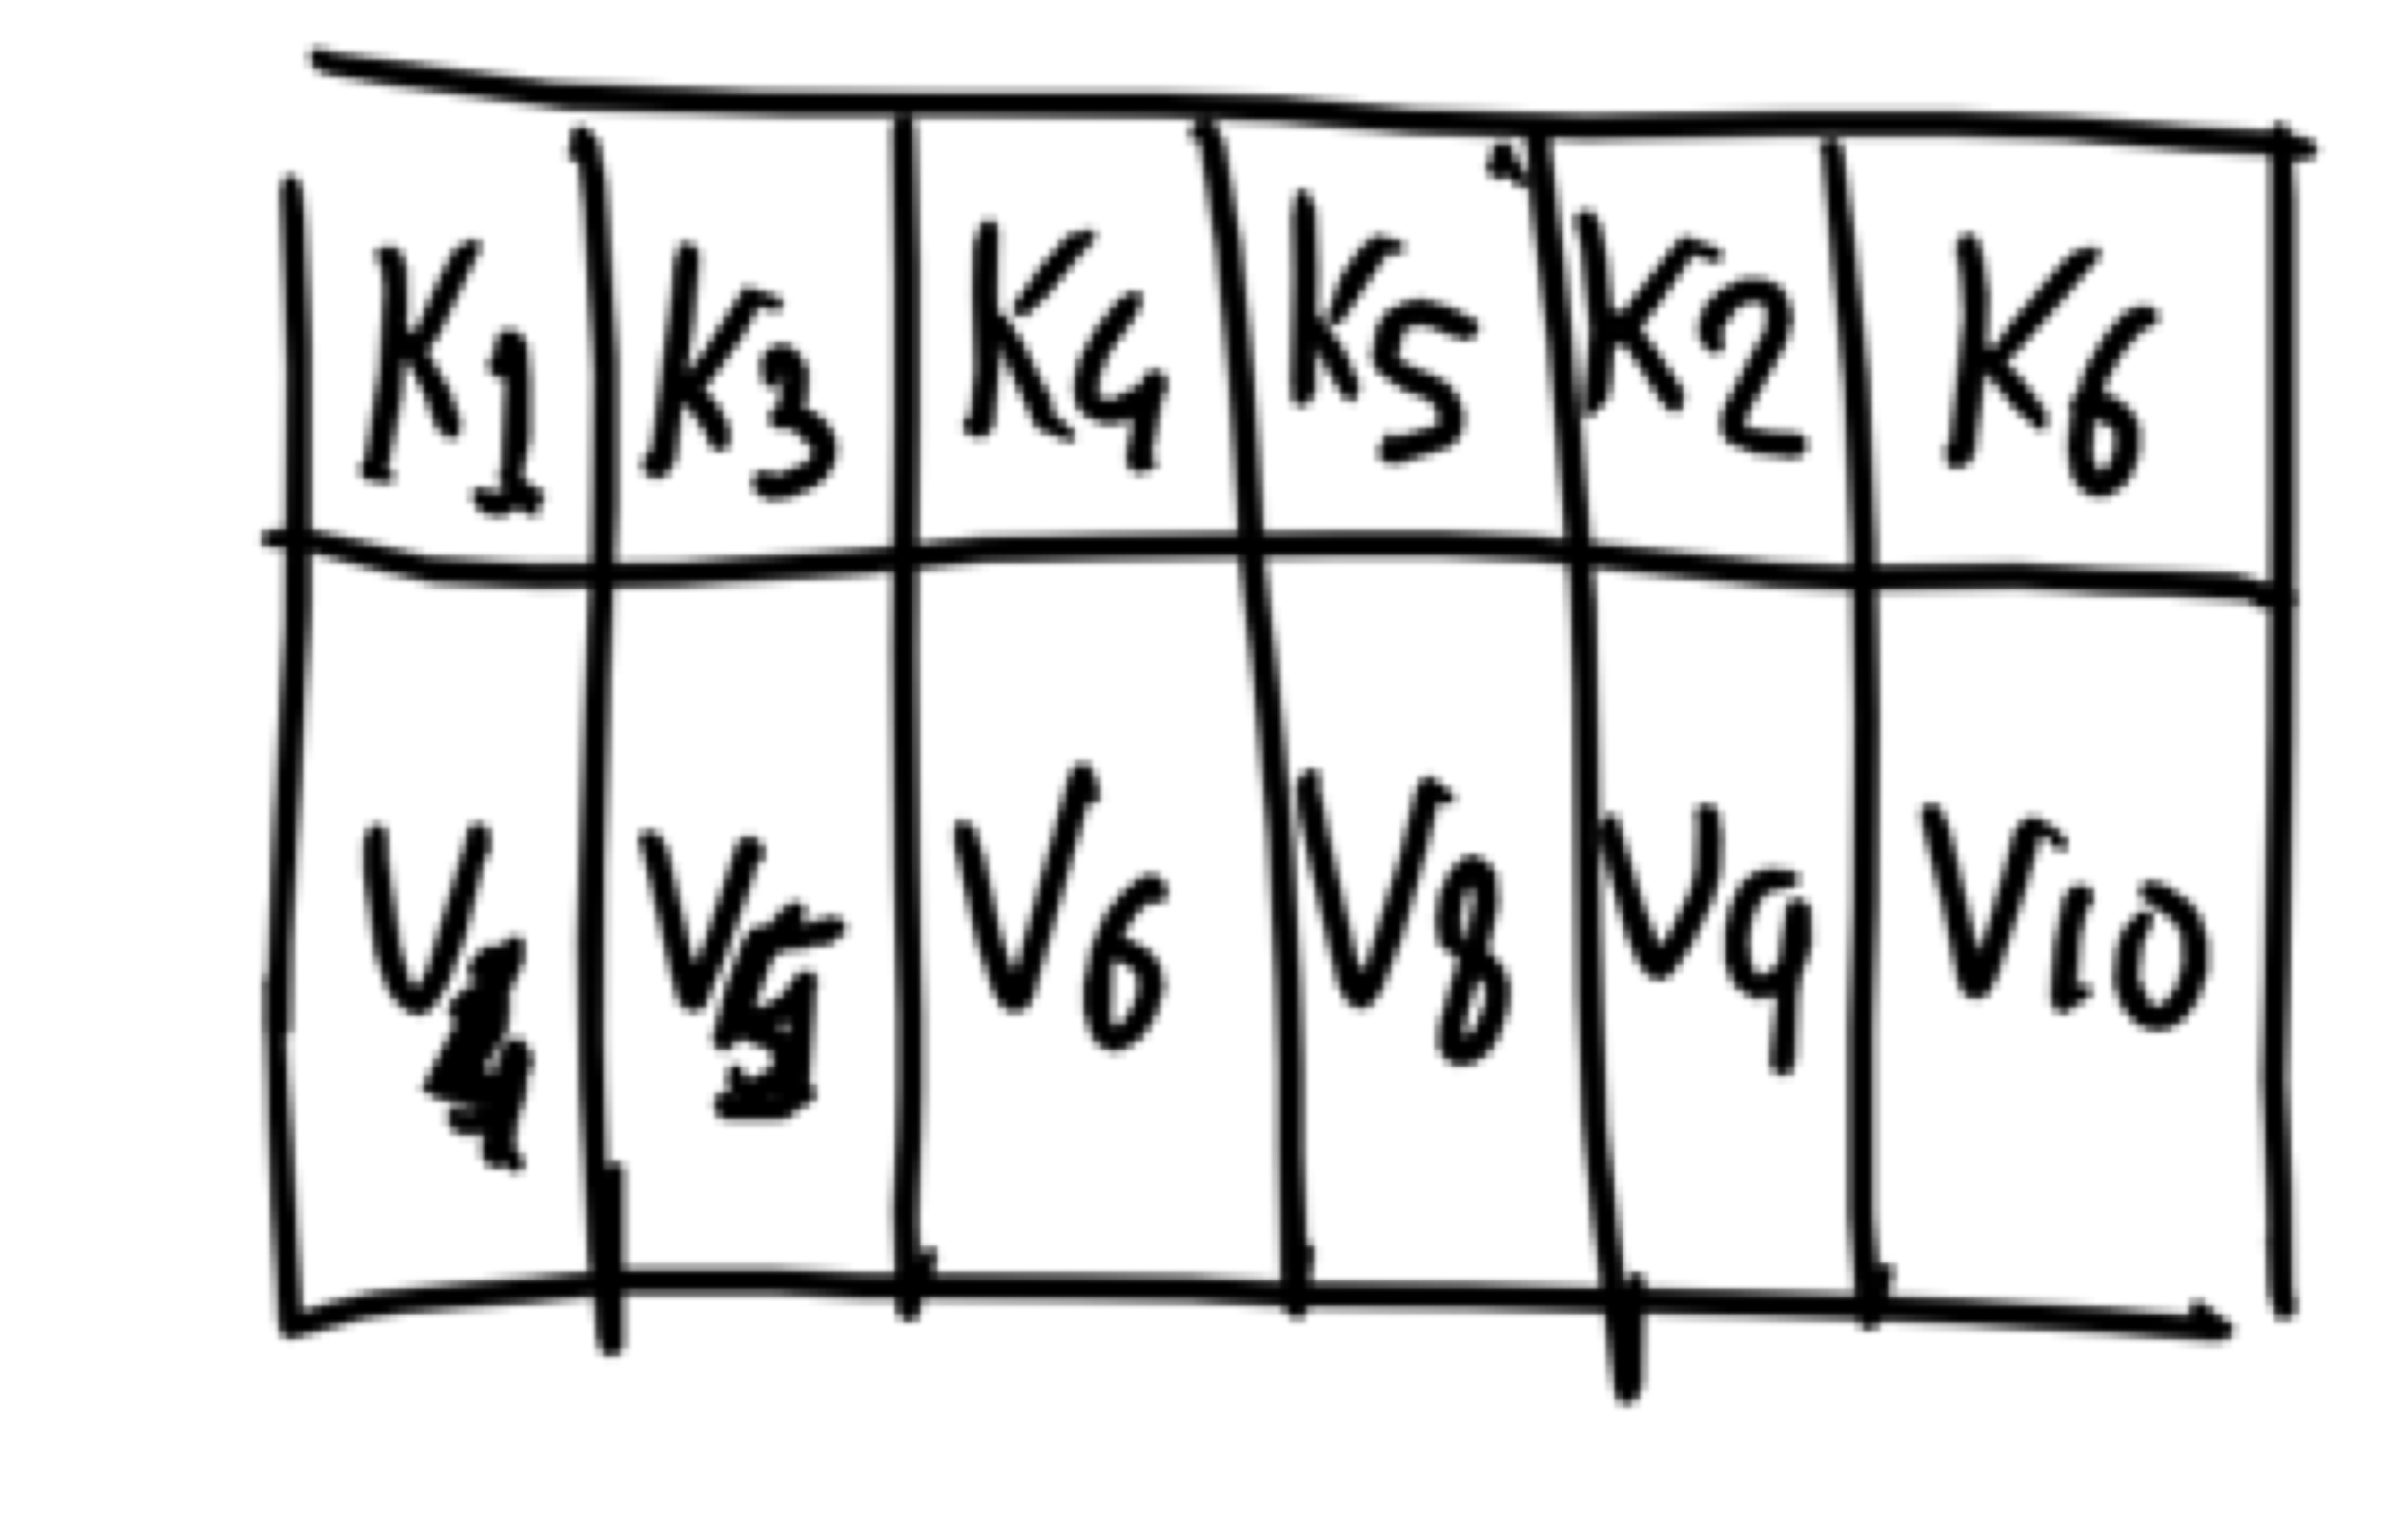 K1 K3 K4 K5 K2 K6
V4 V5 V6 V8 V9 V10